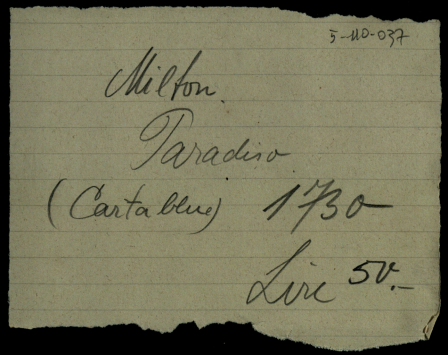 5-110-037
Milton.
Paradiso
(Carta bleue) 1730
Lire 50.-